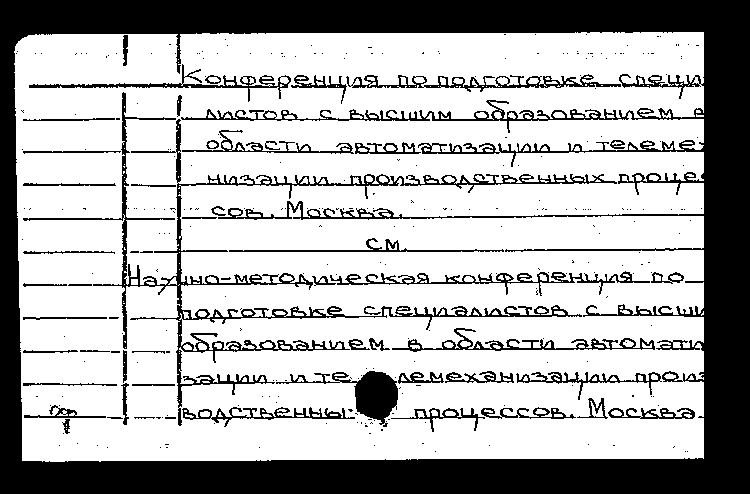 Конференция по подготовке специа
листов с высшим образованием в
области автоматизации и телемеха
низации производственных процес
сов. Москва.
см.
Научно-методическая конференция по
подготовке специалистов с высшим
образованием в области автомати
зации и телемеханизации произ
водственных процессов. Москва.